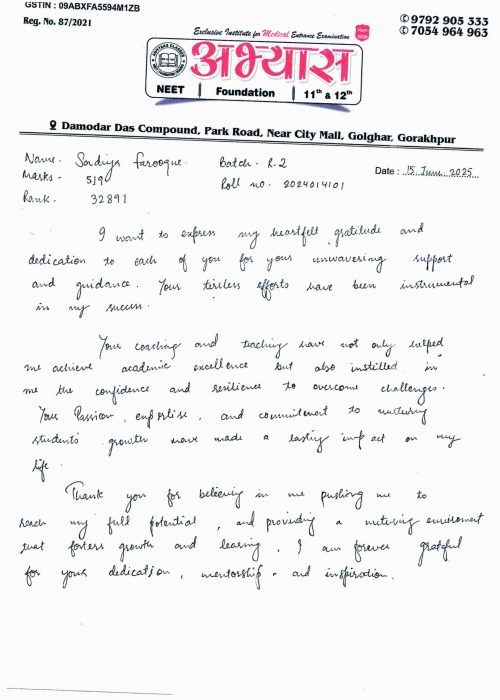 GSTIN : 09ABXFA5594M1ZB
Reg. No. 87/2021
Exclusive Institute for Medical Entrance Examination
✆ 9792 905 333
✆ 7054 964 963
अभ्यास
NEET | Foundation | 11th & 12th
Damodar Das Compound, Park Road, Near City Mall, Golghar, Gorakhpur
Name - Sardiya Farooque Batch - R-2
Marks - 519 Roll no. 2024014101
Date : 15 June 2025
Rank. 32891
I want to express my heartfelt gratitude and
dedication to each of you for your unwavering support
and guidance. Your tireless efforts have been instrumental
in my success.
Your coaching and teaching have not only helped
me achieve academic excellence but also instilled in
me the confidence and resilience to overcome challenges.
Your Passion, expertise, and commitment to nurturing
students growth have made a lasting impact on my
life.
Thank you for believing in me pushing me to
reach my full potential, and providing a nuturing enviroment
that fosters growth and learing, I am forever grateful
for your dedication, mentorship. and inspiration.